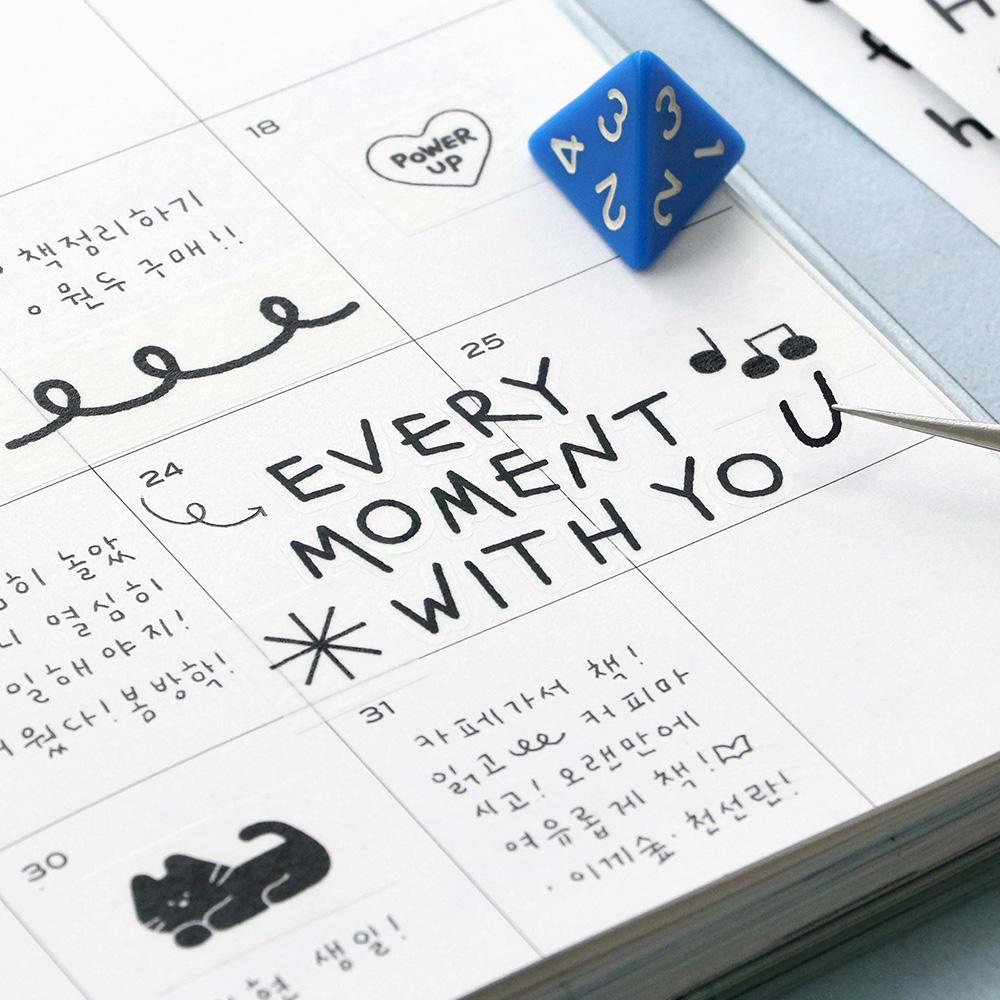 18
POWER
UP
4 3 2
3 1 2
책정리하기
원두 구매!!
25
24
EVERY
MOMENT
WITH YOU
놀았
열심히
일해야지!
웠다! 봄방학!
31
카페가서 책!
읽고 커피마
시고! 오랜만에
여유롭게 책!
· 이끼숲 · 천선란!
30
현 생일!
h